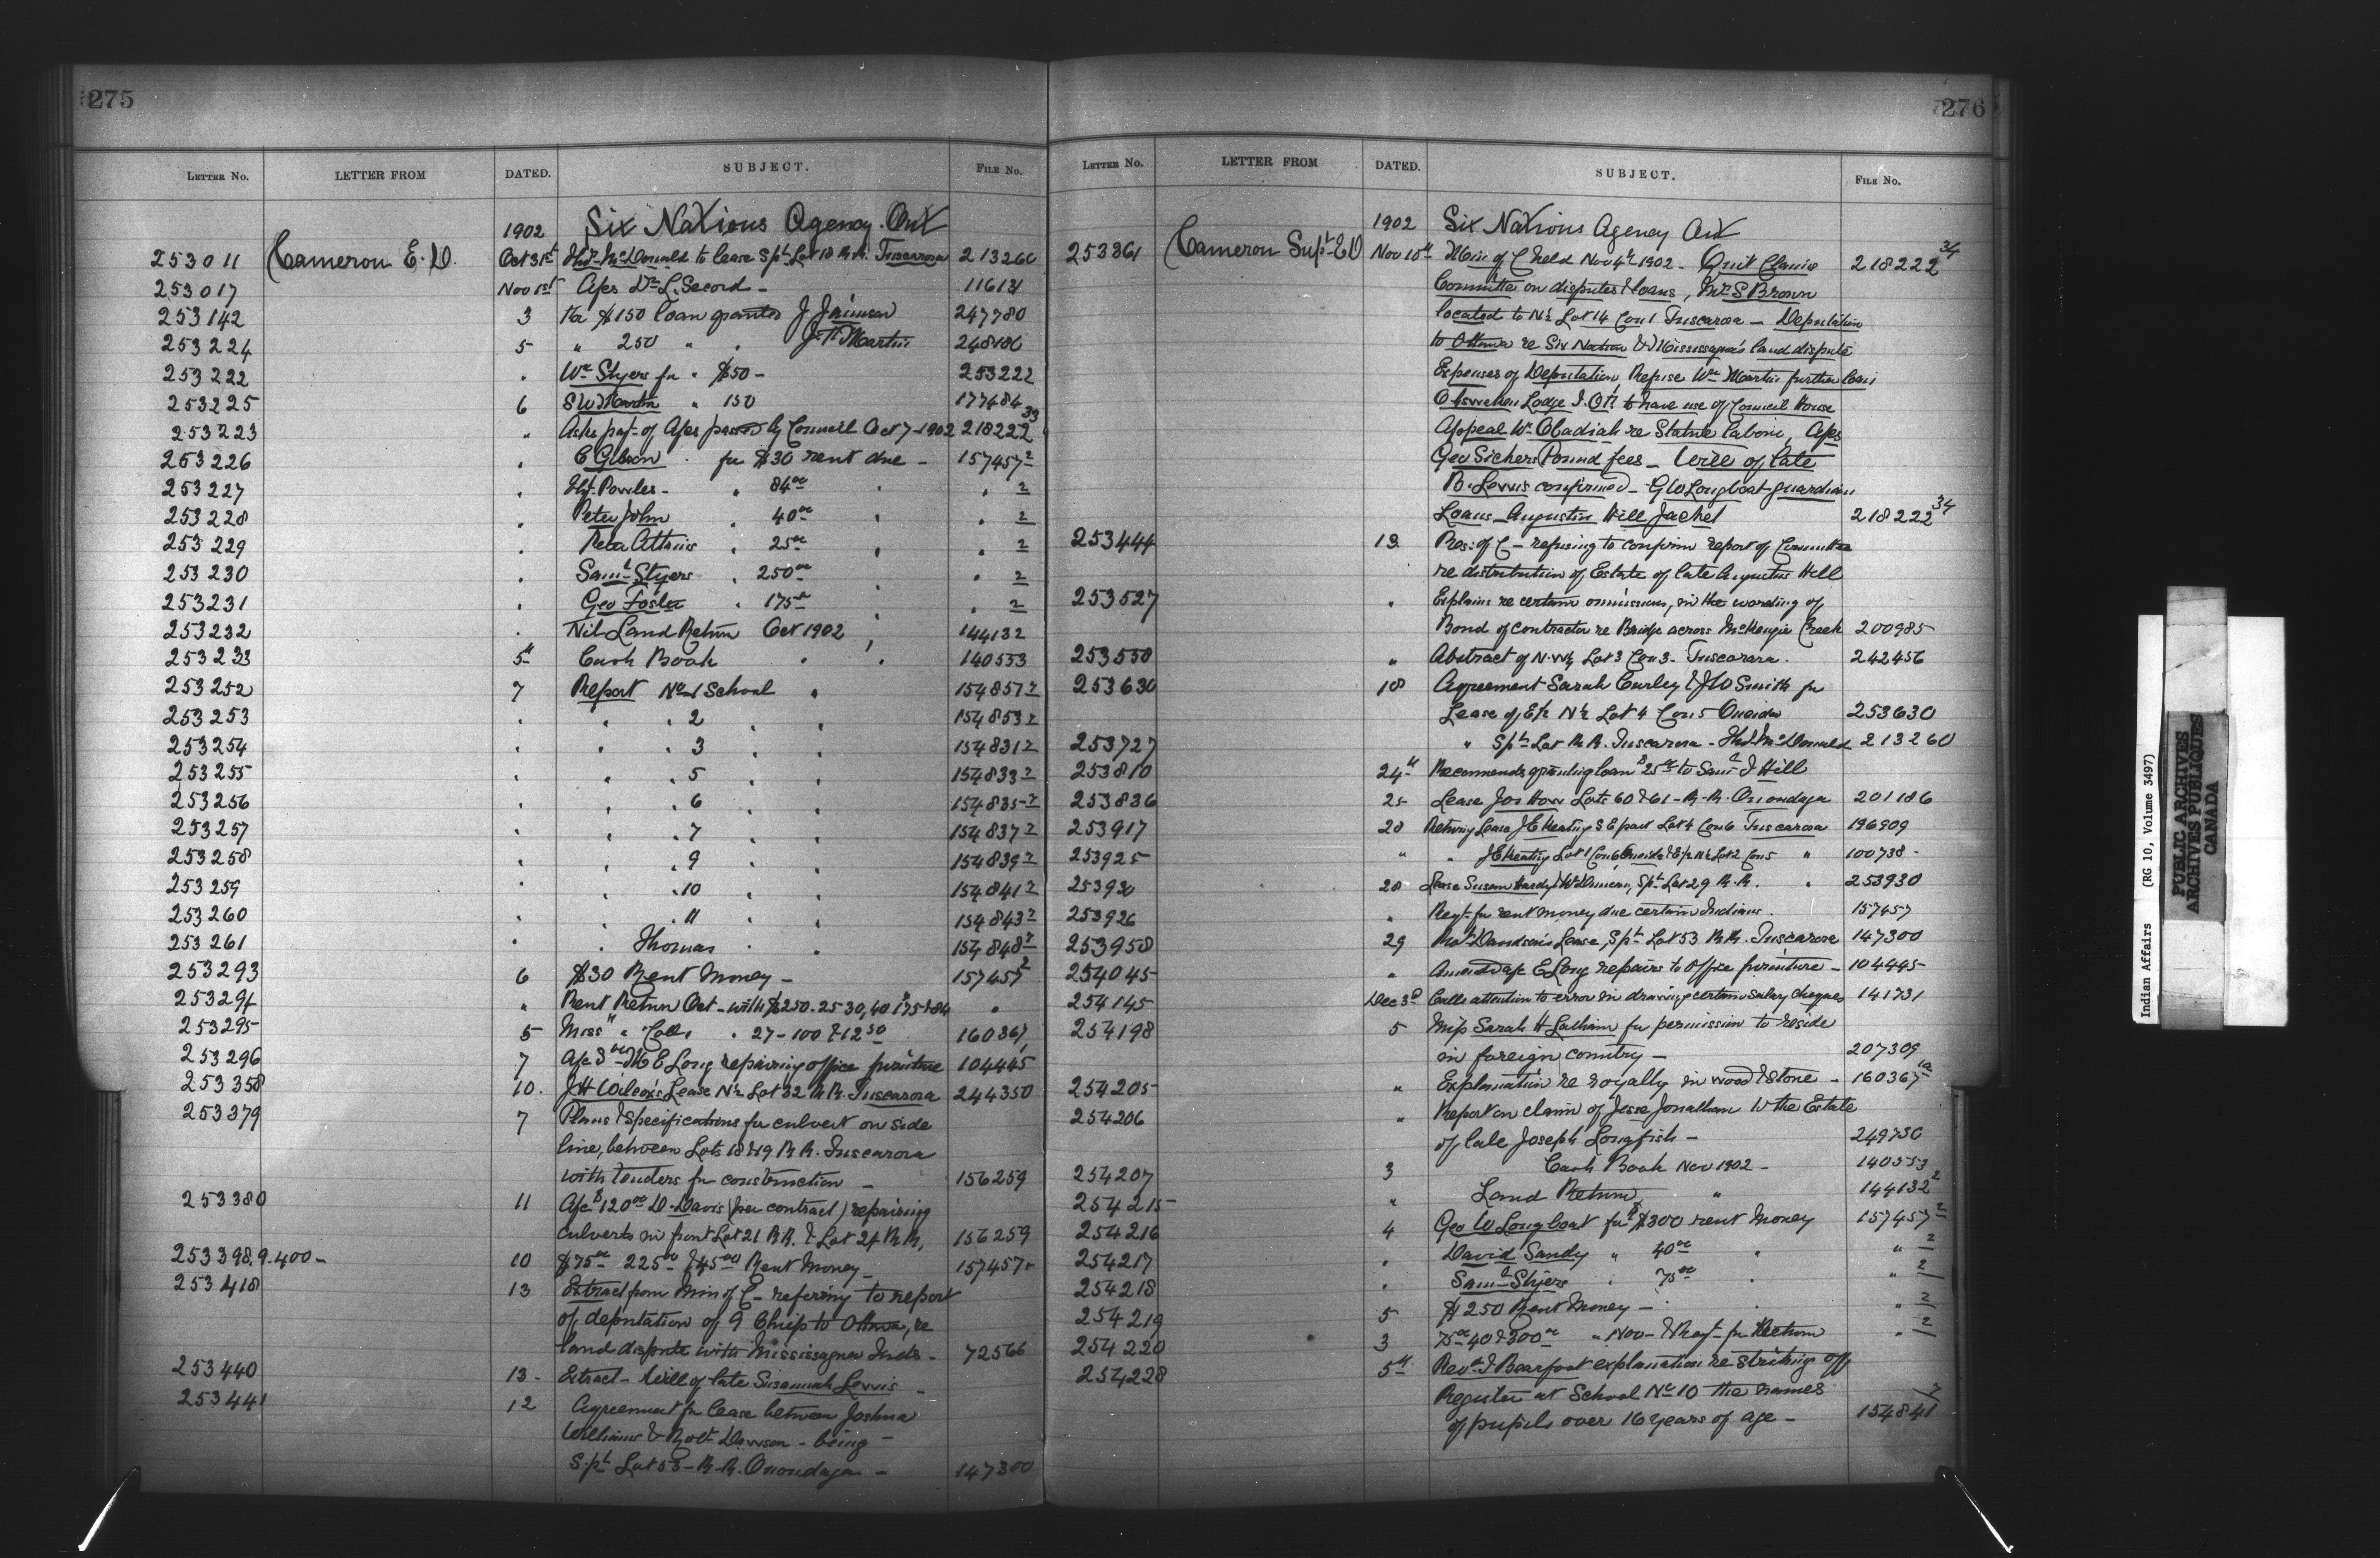 275
LETTER No. LETTER FROM DATED. SUBJECT. FILE No.
1902 Six Nations Agency Ont
253011 Cameron E. D. Oct 31st McDonald to lease Spt Lot 18 R.R. Tuscarora 213260
253017 Nov 1st A/cs Dr L. Secord - 116131
253142 3 for $150 loan granted J Jamieson 247780
253224 5 " 250 " J. T. Martin 248186
253222 Wm Styers for " $50 - 253222
253225 6 S W Martin " 150 177484
253223 " Asks payt of A/cs passed by Council Oct 7-1902 218222 33
253226 E Gibson for $30 rent due - 157457 2
253227 Powles - 84 00 2
253228 Peter John 40 00 2
253229 Peter Atkins 25 00 2
253230 Saml Styers 250 00 2
253231 Geo Foster 175 00 2
253232 Nil Land Return Oct 1902 144132
253233 5th Cash Book 140553
253252 7 Report No 1 School 154851 2
253253 2 154853 2
253254 3 154831 2
253255 5 154833 2
253256 6 154835 2
253257 7 154837 2
253258 9 154839 2
253259 10 154841 2
253260 11 154843 2
253261 Thomas 154848 2
253293 6 $30 Rent Money - 157457 2
253294 " Rent Return Oct - with $250. 25 30, 40 175 & 84
253295 5 Miss " 27 - 100 & 12 50 160367
253296 7 A/c E Long repairing office furniture 104445
253358 10. J H Wilcox's Lease N½ Lot 32 R.R. Tuscarora 244350
253379 7 Plans & Specifications for culvert on side
line, between Lots 18 & 19 R.R. Tuscarora
with tenders for construction - 156259
253380 11 A/c $120 00 D. Davis (per contract) repairing
culverts in front Lot 21 R.R. & Lot 24 R.R. 156259
253398.9.400 - 10 $75 00 225 00 & 45 00 Rent Money - 157457
253418 13 Extract from Min of C - refering to report
of deputation of 9 Chiefs to Ottawa, re
land dispute with Mississagua Inds - 72566
253440 13 - Extract - Will of late Susannah Lewis -
253441 12 Agreement for lease between Joshua
Williams & Robt Davison - being -
S. pt Lot 53 - R.R. Onondaga - 147300
276
LETTER No. LETTER FROM DATED. SUBJECT. FILE No.
1902 Six Nations Agency Ont
253361 Cameron Supt E D Nov 10th Min of C held Nov 4th 1902 - Quit Claims 218222 34
Committee on disputes & loans, Mrs S Brown
located to N½ Lot 14 Con 1 Tuscarora - Deputation
to Ottawa re Six Nation & Mississagua's land dispute
Expenses of Deputation, Refuse Wm Martin further loan
Ohsweken Lodge I. O. F. to have use of Council House
Appeal Wm Obadiah re Statute labour, A/cs
Geo Sickers Pound fees - Will of late
B. Lewis confirmed - G W Longboat guardian
Loans - Augustin Hill Jackel 218222 34
253444 13 Res: of C - refusing to confirm report of Committee
re distribution of Estate of late Augustus Hill
253527 " Explains re certain omissions, in the wording of
Bond of contractor re Bridge across McKenzie Creek 200985
253550 " Abstract of N.W¼ Lot 3 Con 3 - Tuscarora. 242456
253630 18 Agreement Sarah Curley & J W Smith for
Lease of E½ N½ Lot 4 Con 5 Oneida 253630
253727 " Spt Lot R.R. Tuscarora - McDonald 213260
253810 24th Recommends granting loan $25 00 to Saml J Hill
253836 25 Lease Jos Howe Lots 60 & 61 - R.R. Onondaga 201186
253917 28 Returning Lease J E Keating S E part Lot 4 Con 6 Tuscarora 196909
253925 " J E Keating Lot 1 Con 6 Oneida & E½ N½ Lot 2 Con 5 " 100738 -
253930 28 Lease Susan Hardy & Wm Duncan, Spt Lot 29 R.R. 253930
253926 " Reqt for rent money due certain Indians. 157457
253958 29 Robt Davidson's Lease, Spt Lot 53 R.R. Tuscarora 147300
254045 " Amended a/c E Long repairs to office furniture - 104445
254145 Dec 3d Calls attention to error in drawing certain salary cheques 141731
254198 5 Miss Sarah H Latham for permission to reside
in foreign country - 207309
254205 " Explanation re royalty on wood & stone - 160367 1a
254206 " Report on claim of Jesse Jonathan to the Estate
of late Joseph Longfish - 249730
254207 3 Cash Book Nov 1902 - 140553
254215 " Land Return " 144132 2
254216 4 Geo W Longboat for $300 rent money 157457 2
254217 David Sandy " 40 00 " 2
254218 Saml Styers 75 00 " 2
254219 5 $250 Rent Money - " 2
254220 3 75 00 40 & 300 00 " Nov - Return " 2
254228 5th Revd I Bearfoot explanation re striking off
Register at School No 10 the names
of pupils over 16 years of age - 154841
Indian Affairs (RG 10, Volume 3497)
PUBLIC ARCHIVES
ARCHIVES PUBLIQUES
CANADA